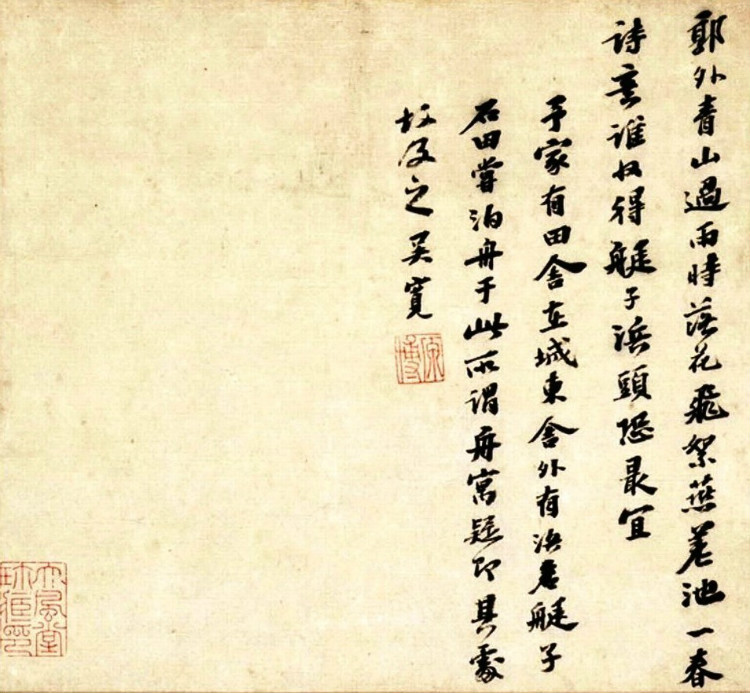 郭外青山過雨時落花飛絮燕差池一春
詩意誰収得艇子浜頭恐最宜
予家有田舍在城東舍外有浜名艇子
石田嘗泊舟于此所謂舟寓疑即其處
故及之吳寬
原博
大風堂珍藏印